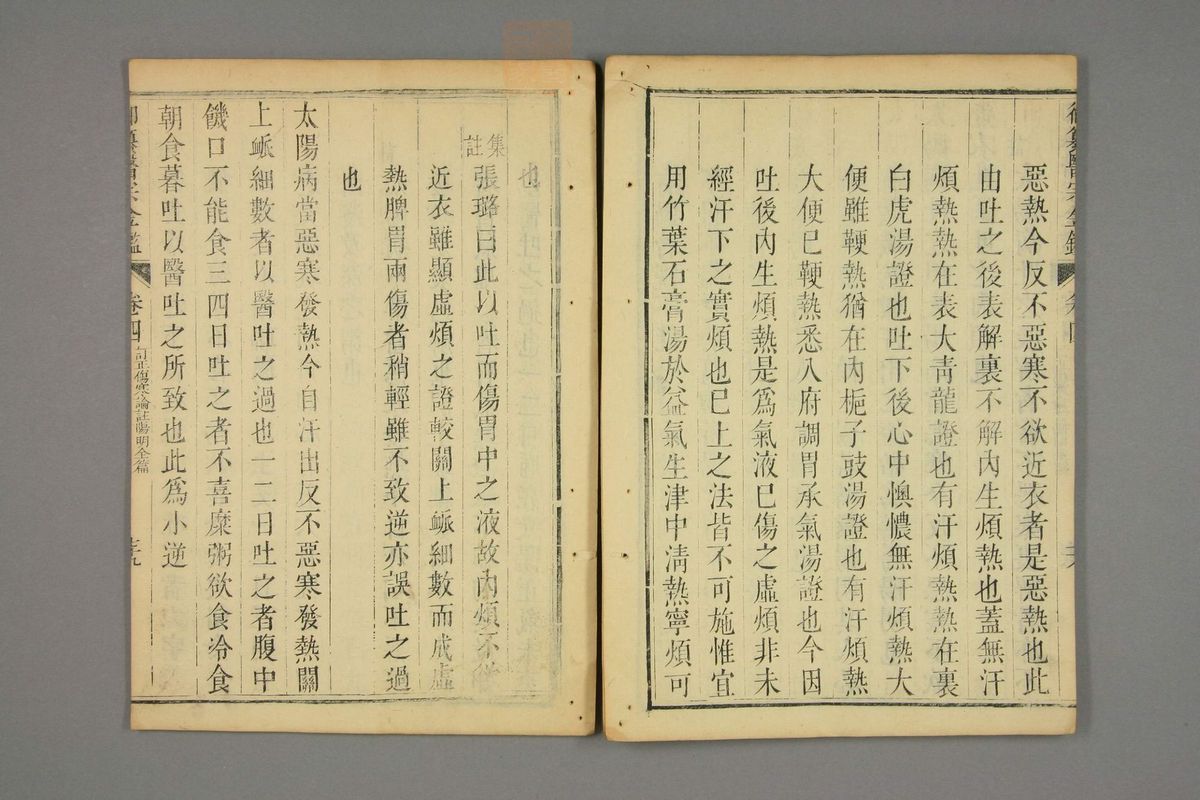 惡熱今反不惡寒不欲近衣者是惡熱也此
由吐之後表解裏不解內生煩熱也蓋無汗
煩熱熱在表大青龍證也有汗煩熱熱在裏
白虎湯證也吐下後心中懊憹無汗煩熱大
便雖鞕熱猶在內梔子豉湯證也有汗煩熱
大便已鞕熱悉入府調胃承氣湯證也今因
吐後內生煩熱是爲氣液已傷之虛煩非未
經汗下之實煩也已上之法皆不可施惟宜
用竹葉石膏湯於益氣生津中淸熱寧煩可
也
集註張璐曰此以吐而傷胃中之液故內煩不欲
近衣雖顯虛煩之證較關上脈細數而成虛
熱脾胃兩傷者稍輕雖不致逆亦誤吐之過
也
太陽病當惡寒發熱今自汗出反不惡寒發熱關
上脈細數者以醫吐之過也一二日吐之者腹中
饑口不能食三四日吐之者不喜糜粥欲食冷食
朝食暮吐以醫吐之所致也此爲小逆
御纂醫宗金鑑 卷四 訂正傷寒論註陽明全篇